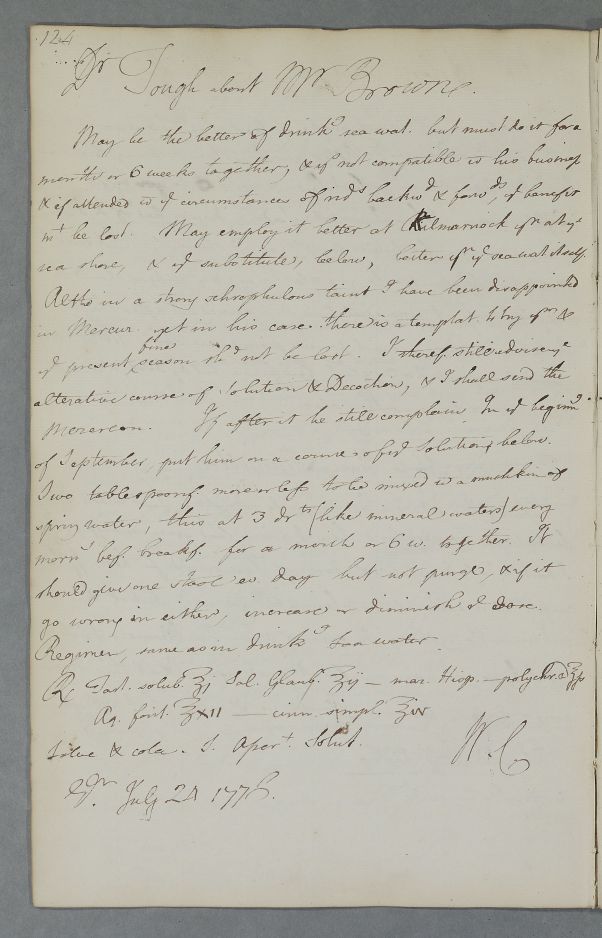 124
Dr Tough about Mr Browne.
May be the better of drinkg sea wat. but must do it for a
month or 6 weeks together, & if not compatible wt his business
& if attended wt ye circumstances of ridg backwd & forwds, ye benefit
mt be lost. May employ it better at Kilmarnock yn at ye
sea shore, & ye substitute, below, better yn ye sea wat itself.
Altho in a strong schrophulous taint I have been disappointed
in Mercur. yet in his case there is a temptat. to try ym &
ye present fine season shd not be lost. I theref. still advise ye
alterative course of Solution & Decoction, & I shall send the
Mezereon. If after it he still complain In ye beginng
of September, put him on a course of ye Solution, below.
Two tablespoonf. more or less to be mixed wt a mutchkin of
spring water, this at 3 drts (like mineral waters) every
morng bef. breakf. for a month or 6 w. together. It
should give one stool ev. day but not purge, & if it
go wrong in either, increase or diminish ye dose.
Regimen, same as in drinkg Sea water.
℞ Tart. solub. ℥j Sal. Glaub. ℥ij — mar. Hisp. — polychr. a ℥ss
Aq. font. ℥xii — cinn. simpl. ℥iv
Solve & cola. S. Apert. Solut.
W. C.
Edr. July 24 1776.